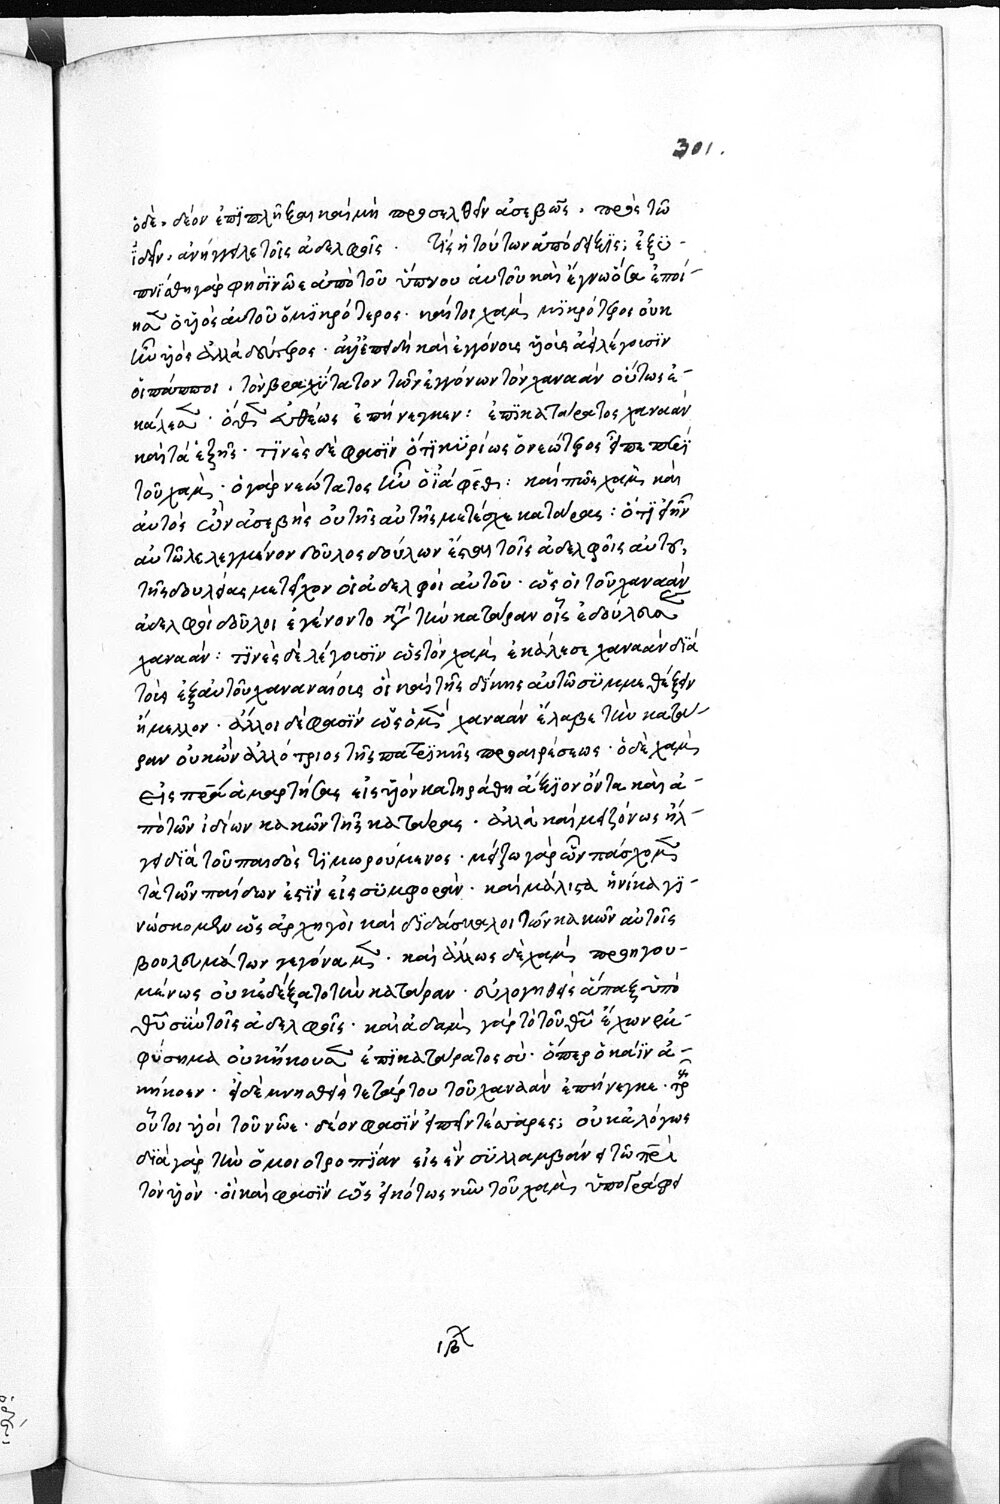 301.
ὁδὲ, δέον ἐπϊπλῆξαι καὶ μὴ προσελθεῖν ἀσεβῶς, πρὸς τῶ
ἰδεῖν, ἀνήγγειλε τοῖς ἀδελφοῖς. τίς ἡ τούτων ἀπόδειξϊς; ἐξϋ-
πνίσθη γάρ φησϊ νῶε ἀπὸ τοῦ ὕπνου αὐτοῦ καὶ ἔγνω ὅσα ἐποί-
ησεν ὁ ϋἱὸς αὐτοῦ ὁ μϊκρότερος. καίτοι χαμ μϊκρότερος οὐκ
ἦν ϋἱὸς ἀλλὰ δεύτερος. ἀλλ' ἐπειδὴ καὶ ἐγγόνους ϋἱοὺς λέγουσϊν
οἱ πάπποι, τὸν βραχϋτατον τῶν ἐγγόνων τὸν χαναὰν οὕτως ἐ-
κάλεσεν. ὅθεν εὐθέως ἐπήνεγκεν: ἐπϊκατάρατος χαναὰν
καὶ τὰ ἑξῆς. τϊνὲς δέ φασϊν ὅτϊ κϋρίως ὁ νεώτερος εἶπε περὶ
τοῦ χαμ. ὁ γὰρ νεώτατος ἦν ὁ ϊάφεθ: καὶ πῶς χαμ καὶ
αὐτὸς ὢν ἀσεβὴς οὐ τῆς αὐτῆς μετέσχε κατάρας: ὅτϊ εἰ ἦν
αὐτῶ λελεγμένον δοῦλος δούλων ἔσται τοῖς ἀδελφοῖς αὐτοῦ,
τῆς δουλείας μετεῖχον οἱ ἀδελφοὶ αὐτοῦ. ὡς οἱ τοῦ χαναὰν
ἀδελφοὶ δοῦλοι ἐγένοντο κατὰ τὴν κατάραν οἷς ἐδούλευσεν
χαναάν: τϊνὲς δὲ λέγουσϊν ὡς τὸν χαμ ἐκάλεσε χαναὰν δϊὰ
τοὺς ἐξ αὐτοῦ χαναναίους οἳ καὶ τῆς δίκης αὐτῶ σϋμμεθέξειν
ἤμελλον. ἄλλοι δέ φασϊν ὡς ὁ μὲν χαναὰν ἔλαβε τὴν κατά-
ραν οὐκ ὢν ἀλλότριος τῆς πατρϊκῆς προαιρέσεως. ὁ δὲ χαμ
εἰς πρα ἁμαρτήσας εἰς ϋἱὸν κατηράθη ἄξϊον ὄντα καὶ ἀ-
πὸ τῶν ἰδίων κακῶν τῆς κατάρας. ἀλλὰ καὶ μειζόνως ἤλ-
γει δϊὰ τοῦ παιδὸς τϊμωρούμενος. μείζω γὰρ ὧν πάσχομεν
τὰ τῶν παίδων ἐστϊν εἰς σϋμφορὰν. καὶ μάλιστα ἡνίκα γϊ-
νώσκομεν ὡς ἀρχηγοὶ καὶ δϊδάσκαλοι τῶν κακῶν αὐτοῖς
βουλευμάτων γεγόναμεν. καὶ ἄλλως δὲ χαμ προηγου-
μένως οὐκ ἐδέξατο τὴν κατάραν. εὐλογηθεὶς ἅπαξ ὑπὸ
θῦ σὺν τοῖς ἀδελφοῖς. καὶ ἀδαμ γὰρ τὸ τοῦ θῦ ἔχων ἐμ-
φύσημα οὐκ ἤκουσεν ἐπϊκατάρατος σύ. ὅπερ ὁ κάϊν ἀ-
κήκοεν. εἰ δὲ μνησθεὶς τετάρτου τοῦ χαναὰν ἐπήνεγκε. τρεῖς
οὗτοι ϋἱοὶ τοῦ νῶε. δέον φασϊν εἰπεῖν τέσσαρες; οὐκ ἀλόγως
δϊὰ γὰρ τὴν ὁμοιοτροπϊαν εἰς ἓν σϋλλαμβάνει τῶ πρὶ
τὸν ϋἱὸν. οἱ καὶ φασϊν ὡς εἰκότως νῦν τοῦ χαμ ὑπογράφει
ιβ